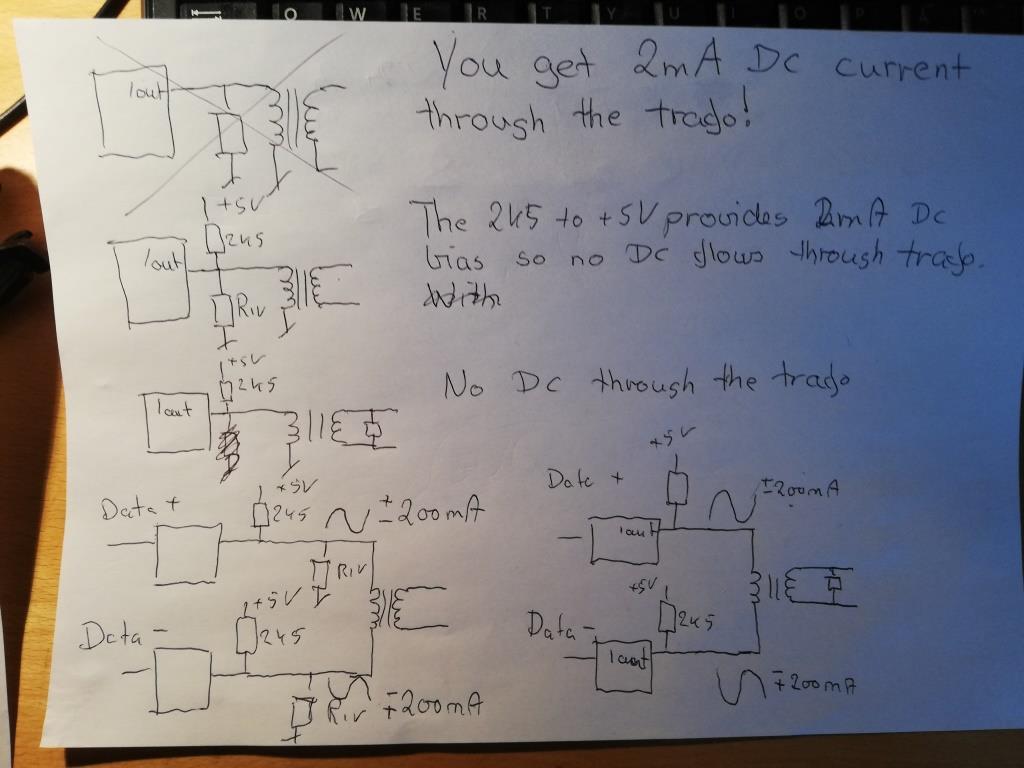 Q W E R T Y U I O P
You get 2mA Dc current
through the trafo!
Iout
+5V
2k5
The 2k5 to +5V provides 2mA Dc
bias so no Dc flows through trafo.
With
Iout
Riv
+5V
2k5
No Dc through the trafo
Iout
+5V
Data +
+5V
2k5
±200mA
Data +
±200mA
Iout
Riv
+5V
+5V
Data -
2k5
Data -
2k5
Iout
Riv
∓200mA
∓200mA